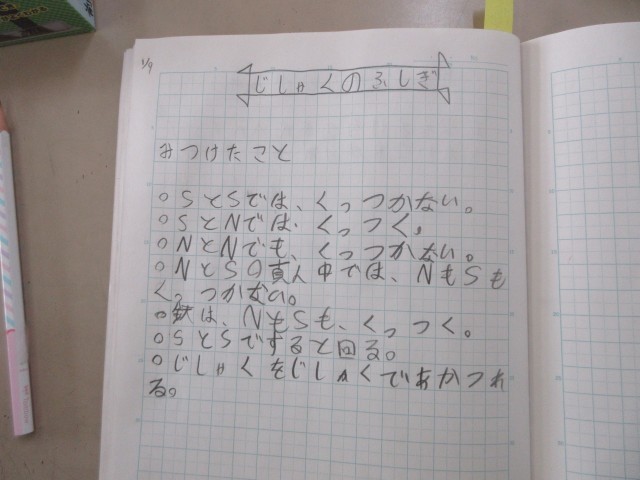 1/9
じしゃくのふしぎ
みつけたこと
○SとSでは、くっつかない。
○SとNでは、くっつく。
○NとNでも、くっつかない。
○NとSの真人中では、NもSも
くっつかない。
○鉄は、NもSも、くっつく。
○SとSですると回る。
○じしゃくをじしゃくであやつれ
る。